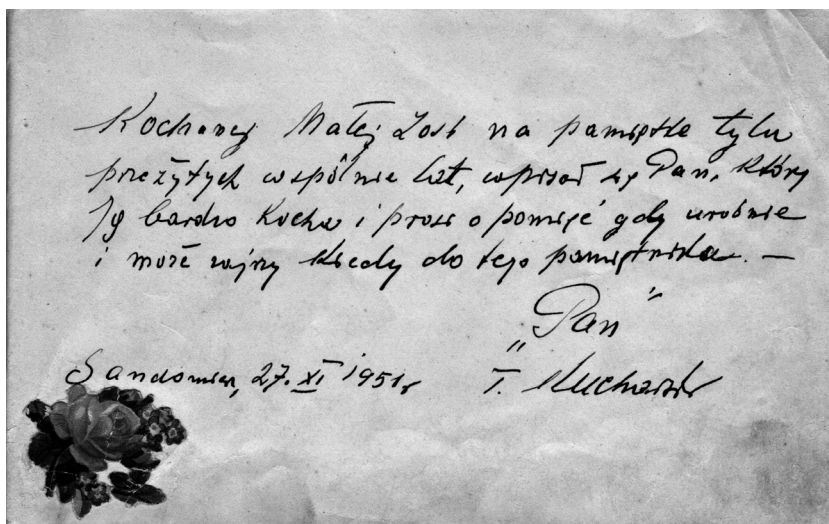 Kochanej Małej Zosi na pamiątkę tylu
przeżytych wspólnie lat, wpisał się Pan, który
Ją bardzo Kocha i prosi o pamięć gdy urośnie
i może zajrzy kiedy do tego pamiętnika. —
„Pan"
Sandomierz, 27. XI 1951r T.